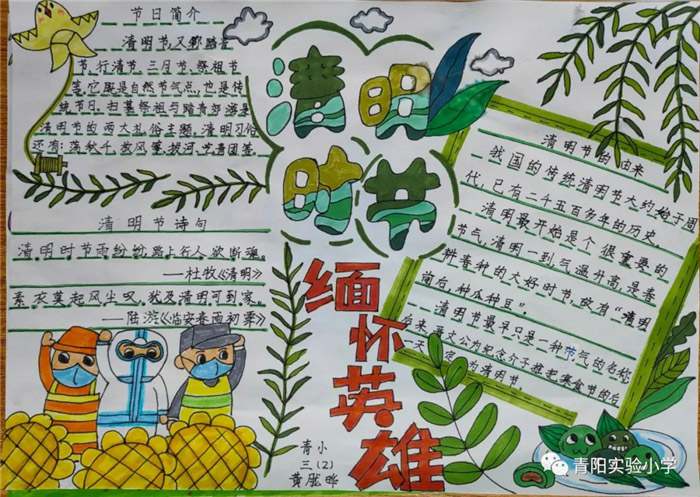 节日简介
清明节,又
节、行清节、三月节、祭祖节
等,它既是自然节气点,也是传
统节日,扫墓祭祖与踏青郊游是
清明节的两大礼俗主题,清明习俗
还有:荡秋千、放风筝、拔河、吃青团等。
清明节诗句
清明时节雨纷纷,路上行人欲断魂。
——杜牧《清明》
素衣莫起风尘叹,犹及清明可到家。
——陆游《临安春雨初霁》
清明
时节
缅怀英雄
清明节的由来
我国的传统清明节大约始于周
代,已有二千五百多年的历史。
清明最开始是个很重要的
节气,清明一到气温升高,是春
耕春种的大好时节,故有“清明
前后,种瓜种豆”。
清明节最早只是一种节气的名称
后来晋文公为纪念介子推把寒食节的后
一天定为清明节。
青小
三(2)
黄
青阳实验小学